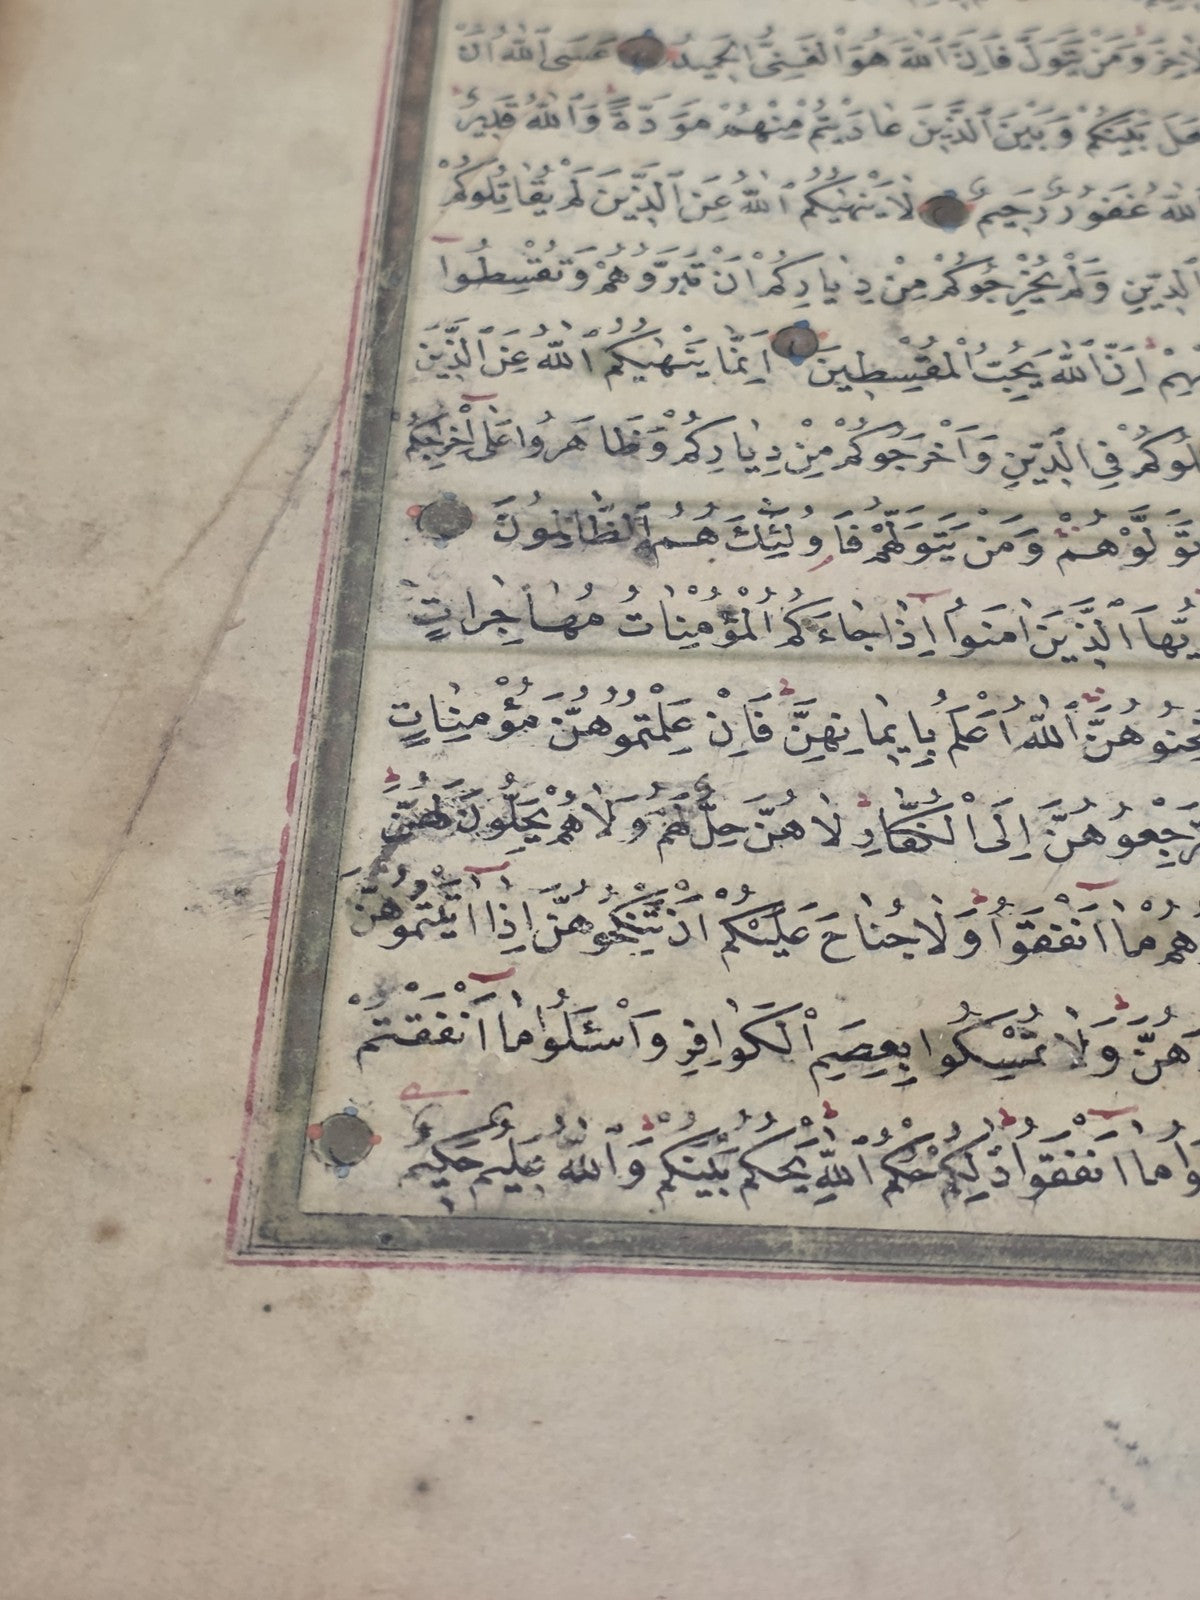 الْاٰخِرَ وَمَنْ يَتَوَلَّ فَاِنَّ اللّٰهَ هُوَ الْغَنِىُّ الْحَمِيدُ عَسَى اللّٰهُ اَنْ
يَجْعَلَ بَيْنَكُمْ وَبَيْنَ الَّذِينَ عَادَيْتُمْ مِنْهُمْ مَوَدَّةً وَاللّٰهُ قَدِيرٌ
اللّٰهُ غَفُورٌ رَحِيمٌ لَا يَنْهٰيكُمُ اللّٰهُ عَنِ الَّذِينَ لَمْ يُقَاتِلُوكُمْ
الدِّينِ وَلَمْ يُخْرِجُوكُمْ مِنْ دِيَارِكُمْ اَنْ تَبَرُّوهُمْ وَتُقْسِطُوا
اِنَّ اللّٰهَ يُحِبُّ الْمُقْسِطِينَ اِنَّمَا يَنْهٰيكُمُ اللّٰهُ عَنِ الَّذِينَ
لُوكُمْ فِى الدِّينِ وَاَخْرَجُوكُمْ مِنْ دِيَارِكُمْ وَظَاهَرُوا عَلٰى اِخْرَاجِكُمْ
تَوَلَّوْهُمْ وَمَنْ يَتَوَلَّهُمْ فَاُولٰئِكَ هُمُ الظَّالِمُونَ
يُّهَا الَّذِينَ اٰمَنُوا اِذَا جَاءَكُمُ الْمُؤْمِنَاتُ مُهَاجِرَاتٍ
تَحِنُوهُنَّ اللّٰهُ اَعْلَمُ بِاِيمَانِهِنَّ فَاِنْ عَلِمْتُمُوهُنَّ مُؤْمِنَاتٍ
تَرْجِعُوهُنَّ اِلَى الْكُفَّارِ لَا هُنَّ حِلٌّ لَهُمْ وَلَا هُمْ يَحِلُّونَ لَهُنَّ
هُمْ مَا اَنْفَقُوا وَلَا جُنَاحَ عَلَيْكُمْ اَنْ تَنْكِحُوهُنَّ اِذَا اٰتَيْتُمُوهُنَّ
هُنَّ وَلَا تُمْسِكُوا بِعِصَمِ الْكَوَافِرِ وَاسْئَلُوا مَا اَنْفَقْتُمْ
وا مَا اَنْفَقُوا ذٰلِكُمْ حُكْمُ اللّٰهِ يَحْكُمُ بَيْنَكُمْ وَاللّٰهُ عَلِيمٌ حَكِيمٌ